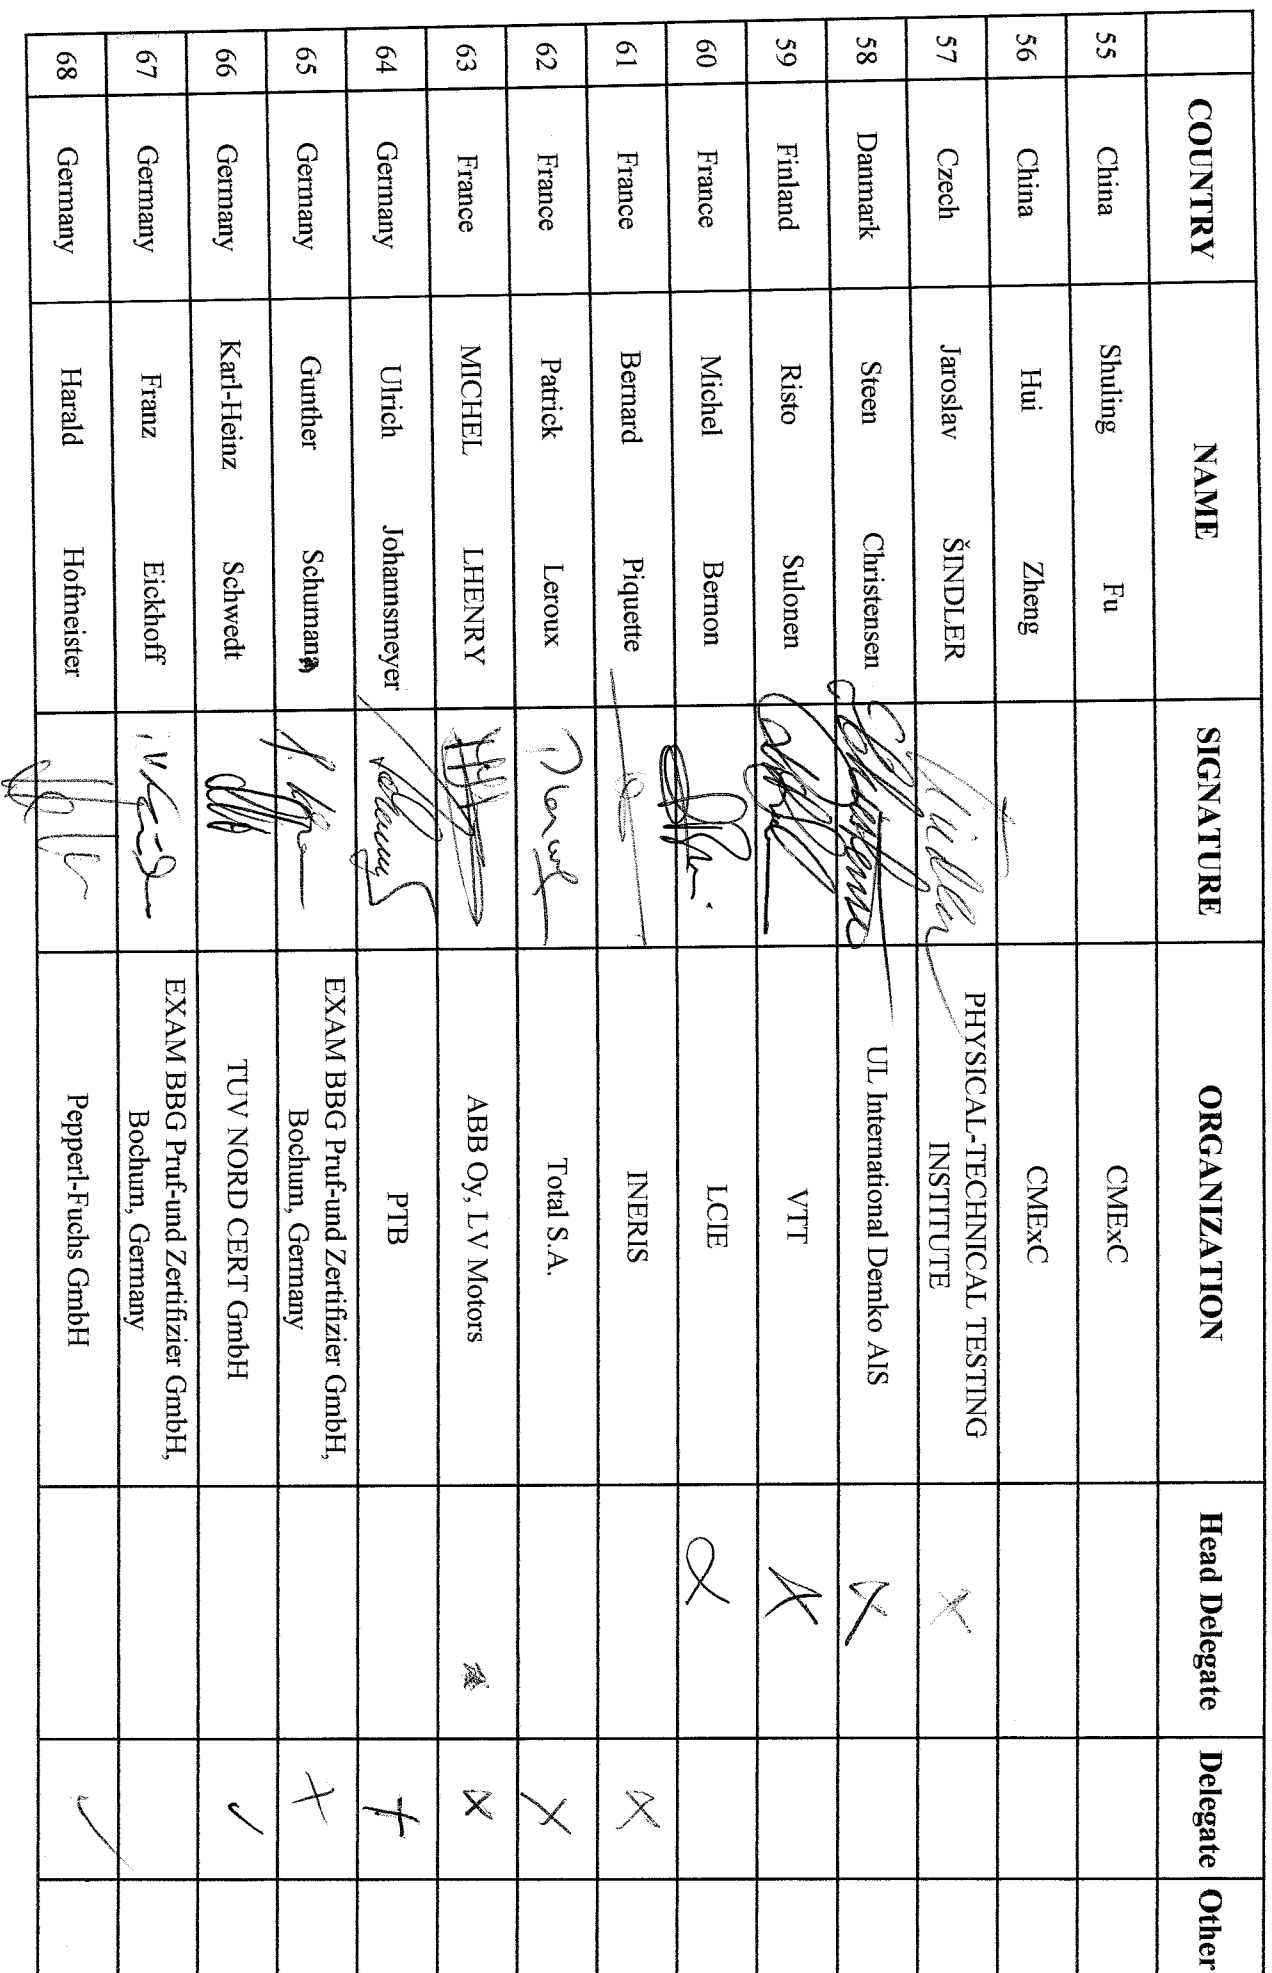 COUNTRY NAME SIGNATURE ORGANIZATION Head Delegate Delegate Other
55 China Shuling Fu CMExC
56 China Hui Zheng CMExC
57 Czech Jaroslav ŠINDLER PHYSICAL-TECHNICAL TESTING
INSTITUTE X
58 Danmark Steen Christensen UL International Demko AIS X
59 Finland Risto Sulonen VTT X
60 France Michel Bernon LCIE X
61 France Bernard Piquette INERIS X
62 France Patrick Leroux Total S.A. X
63 France MICHEL LHENRY ABB Oy, LV Motors X
64 Germany Ulrich Johannsmeyer PTB X
65 Germany Gunther Schumann EXAM BBG Pruf-und Zertifizier GmbH,
Bochum, Germany X
66 Germany Karl-Heinz Schwedt TUV NORD CERT GmbH ✓
67 Germany Franz Eickhoff EXAM BBG Pruf-und Zertifizier GmbH,
Bochum, Germany
68 Germany Harald Hofmeister Pepperl-Fuchs GmbH ✓